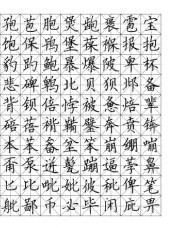 狍苞胞煲龅褒雹宝
饱保鸨堡葆褓报抱
豹趵鲍暴爆陂卑杯
悲碑鹎北贝狈邶备
背钡倍悖被惫焙辈
碚蓓褙鞴鐾奔贲锛
本苯畚坌笨崩绷嘣
甭泵迸甏蹦逼荸鼻
匕比吡妣彼秕俾笔
舭鄙币必毕闭庇畀